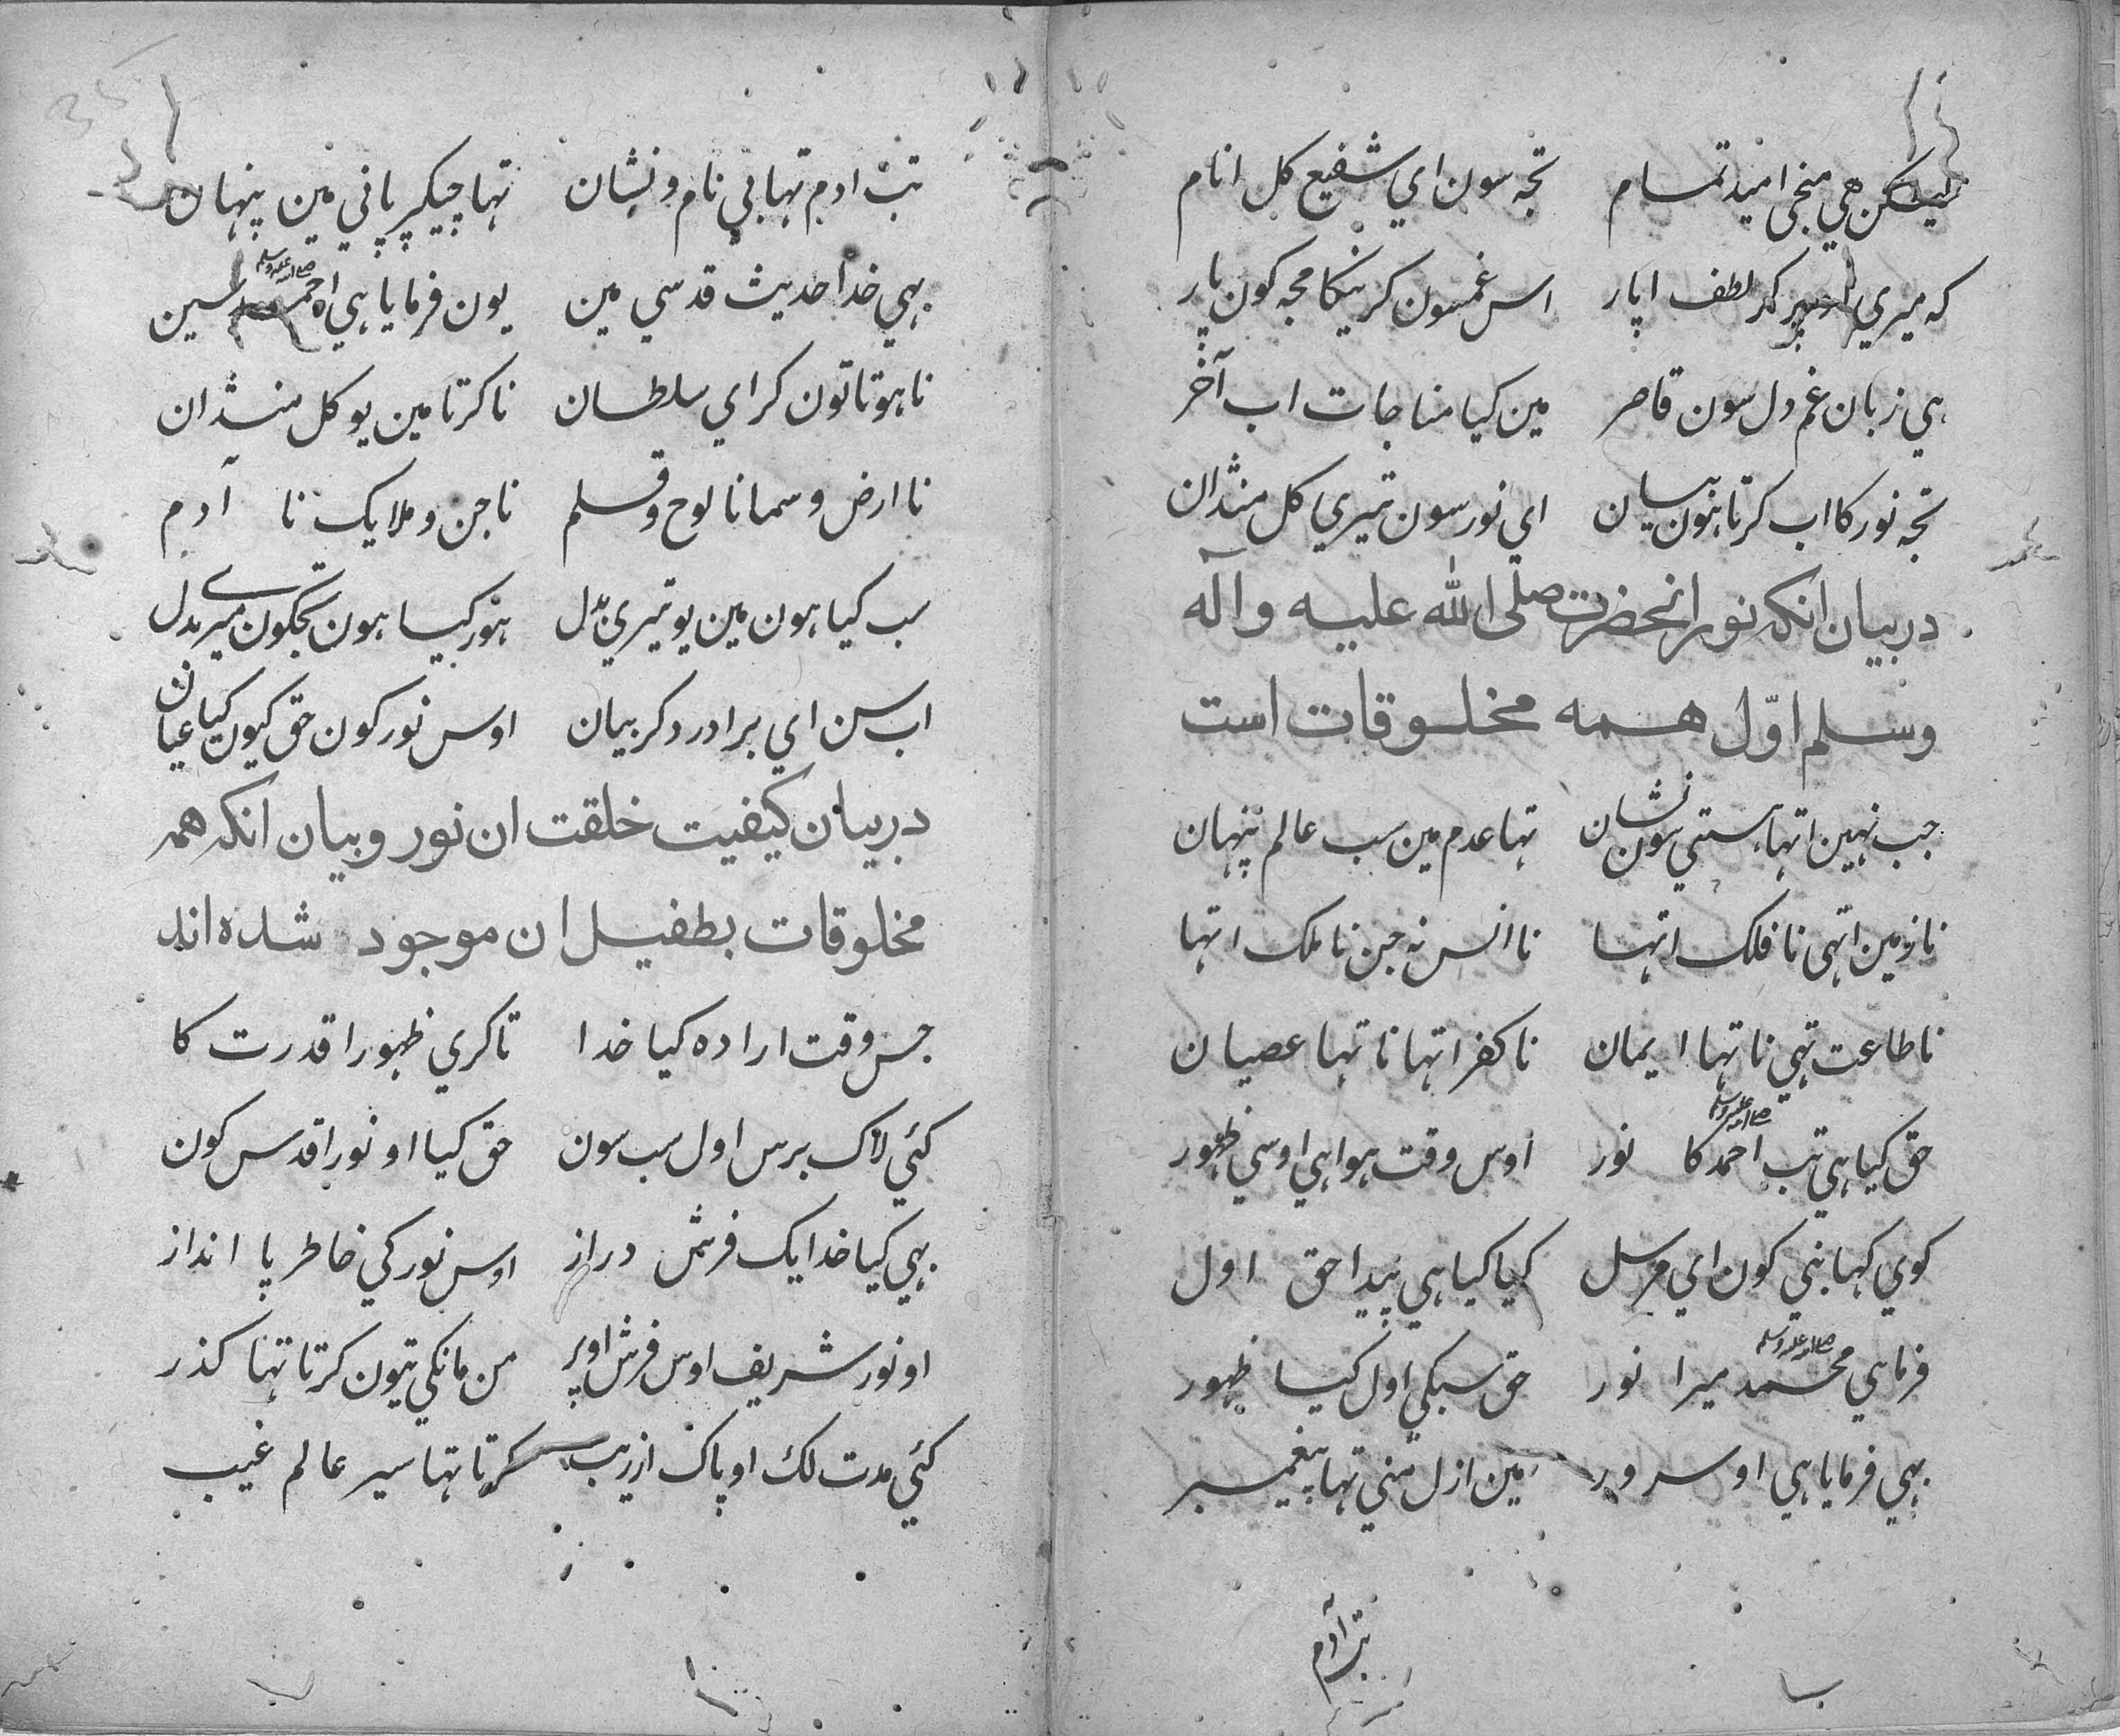 لیکن هي منجي امید تمام تجه سون اي شفیع کل انام
که میري اوپر کر لطف اپار اس غمسون کرنیکا مجه کون پار
هي زبان غم دل سون قاصر مین کیا مناجات اب آخر
تجه نور کا اب کرتا هون بیان اي نور سون تیري کل منڈان
در بیان انکه نور انحضرت صلی الله علیه وآله
وسلم اوّل همه مخلوقات است
جب نهین اتها هستي سون نشان تها عدم مین سب عالم پنهان
نا زمین اتهی نا فلک اتها نا انس نه جن نا ملک اتها
نا طاعت تهي نا تها ایمان نا کفر اتها نا تها عصیان
حق کیا هي تب احمد صلی الله علیه وسلم کا نور اوس وقت هوا هي اوسي ظهور
کوي کها نبي کون اي مرسل کیا کیا هي پیدا حق اول
فرماي محمد صلی الله علیه وسلم میرا نور حق سبکي اول کیا ظهور
بهي فرمایا هي او سرور مین ازل مني تها پیغمبر
تب آدم
تب ادم تها بي نام و نشان تها چیکڑ پاني مین پنهان
بهي خدا حدیث قدسي مین یون فرمایا هي احمد صلی الله علیه وسلم سین
نا هوتا تون کر اي سلطان نا کرتا مین یو کل منڈان
نا ارض و سما نا لوح و قلم نا جن و ملایک نا آدم
سب کیا هون مین یو تیري بدل هور کیا هون تجکون میرے بدل
اب سن اي برادر دکر بیان اوس نور کون حق کیون کیا عیان
در بیان کیفیت خلقت ان نور و بیان انکه همه
مخلوقات بطفیل ان موجود شده اند
جس وقت اراده کیا خدا تا کري ظهورا قدرت کا
کئي لاک برس اول سب سون حق کیا او نور اقدس کون
بهي کیا خدا یک فرش دراز اوس نور کي خاطر پا انداز
او نور شریف اوس فرش اوپر من مانکي تیون کرتا تها کذر
کئي مدت لک او پاک از ریب کرتا تها سیر عالم غیب